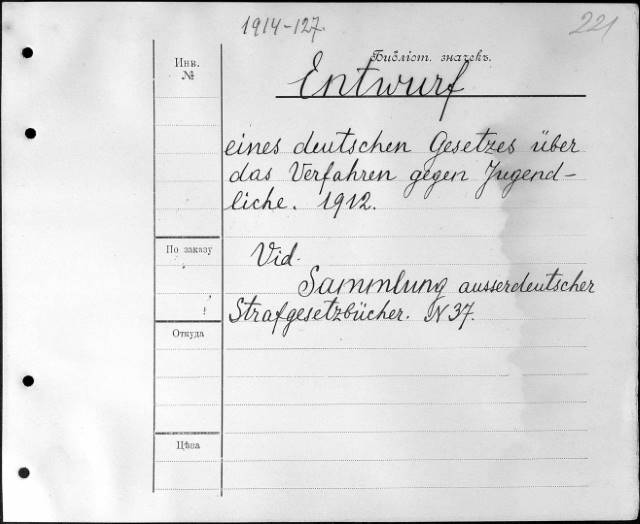 1914-127.
221
Инв.
№
Библіот. значекъ.
Entwurf
eines deutschen Gesetzes über
das Verfahren gegen Jugend-
liche. 1912.
По заказу
Vid.
Sammlung ausserdeutscher
Strafgesetzbücher. N 37.
Откуда
Цѣна